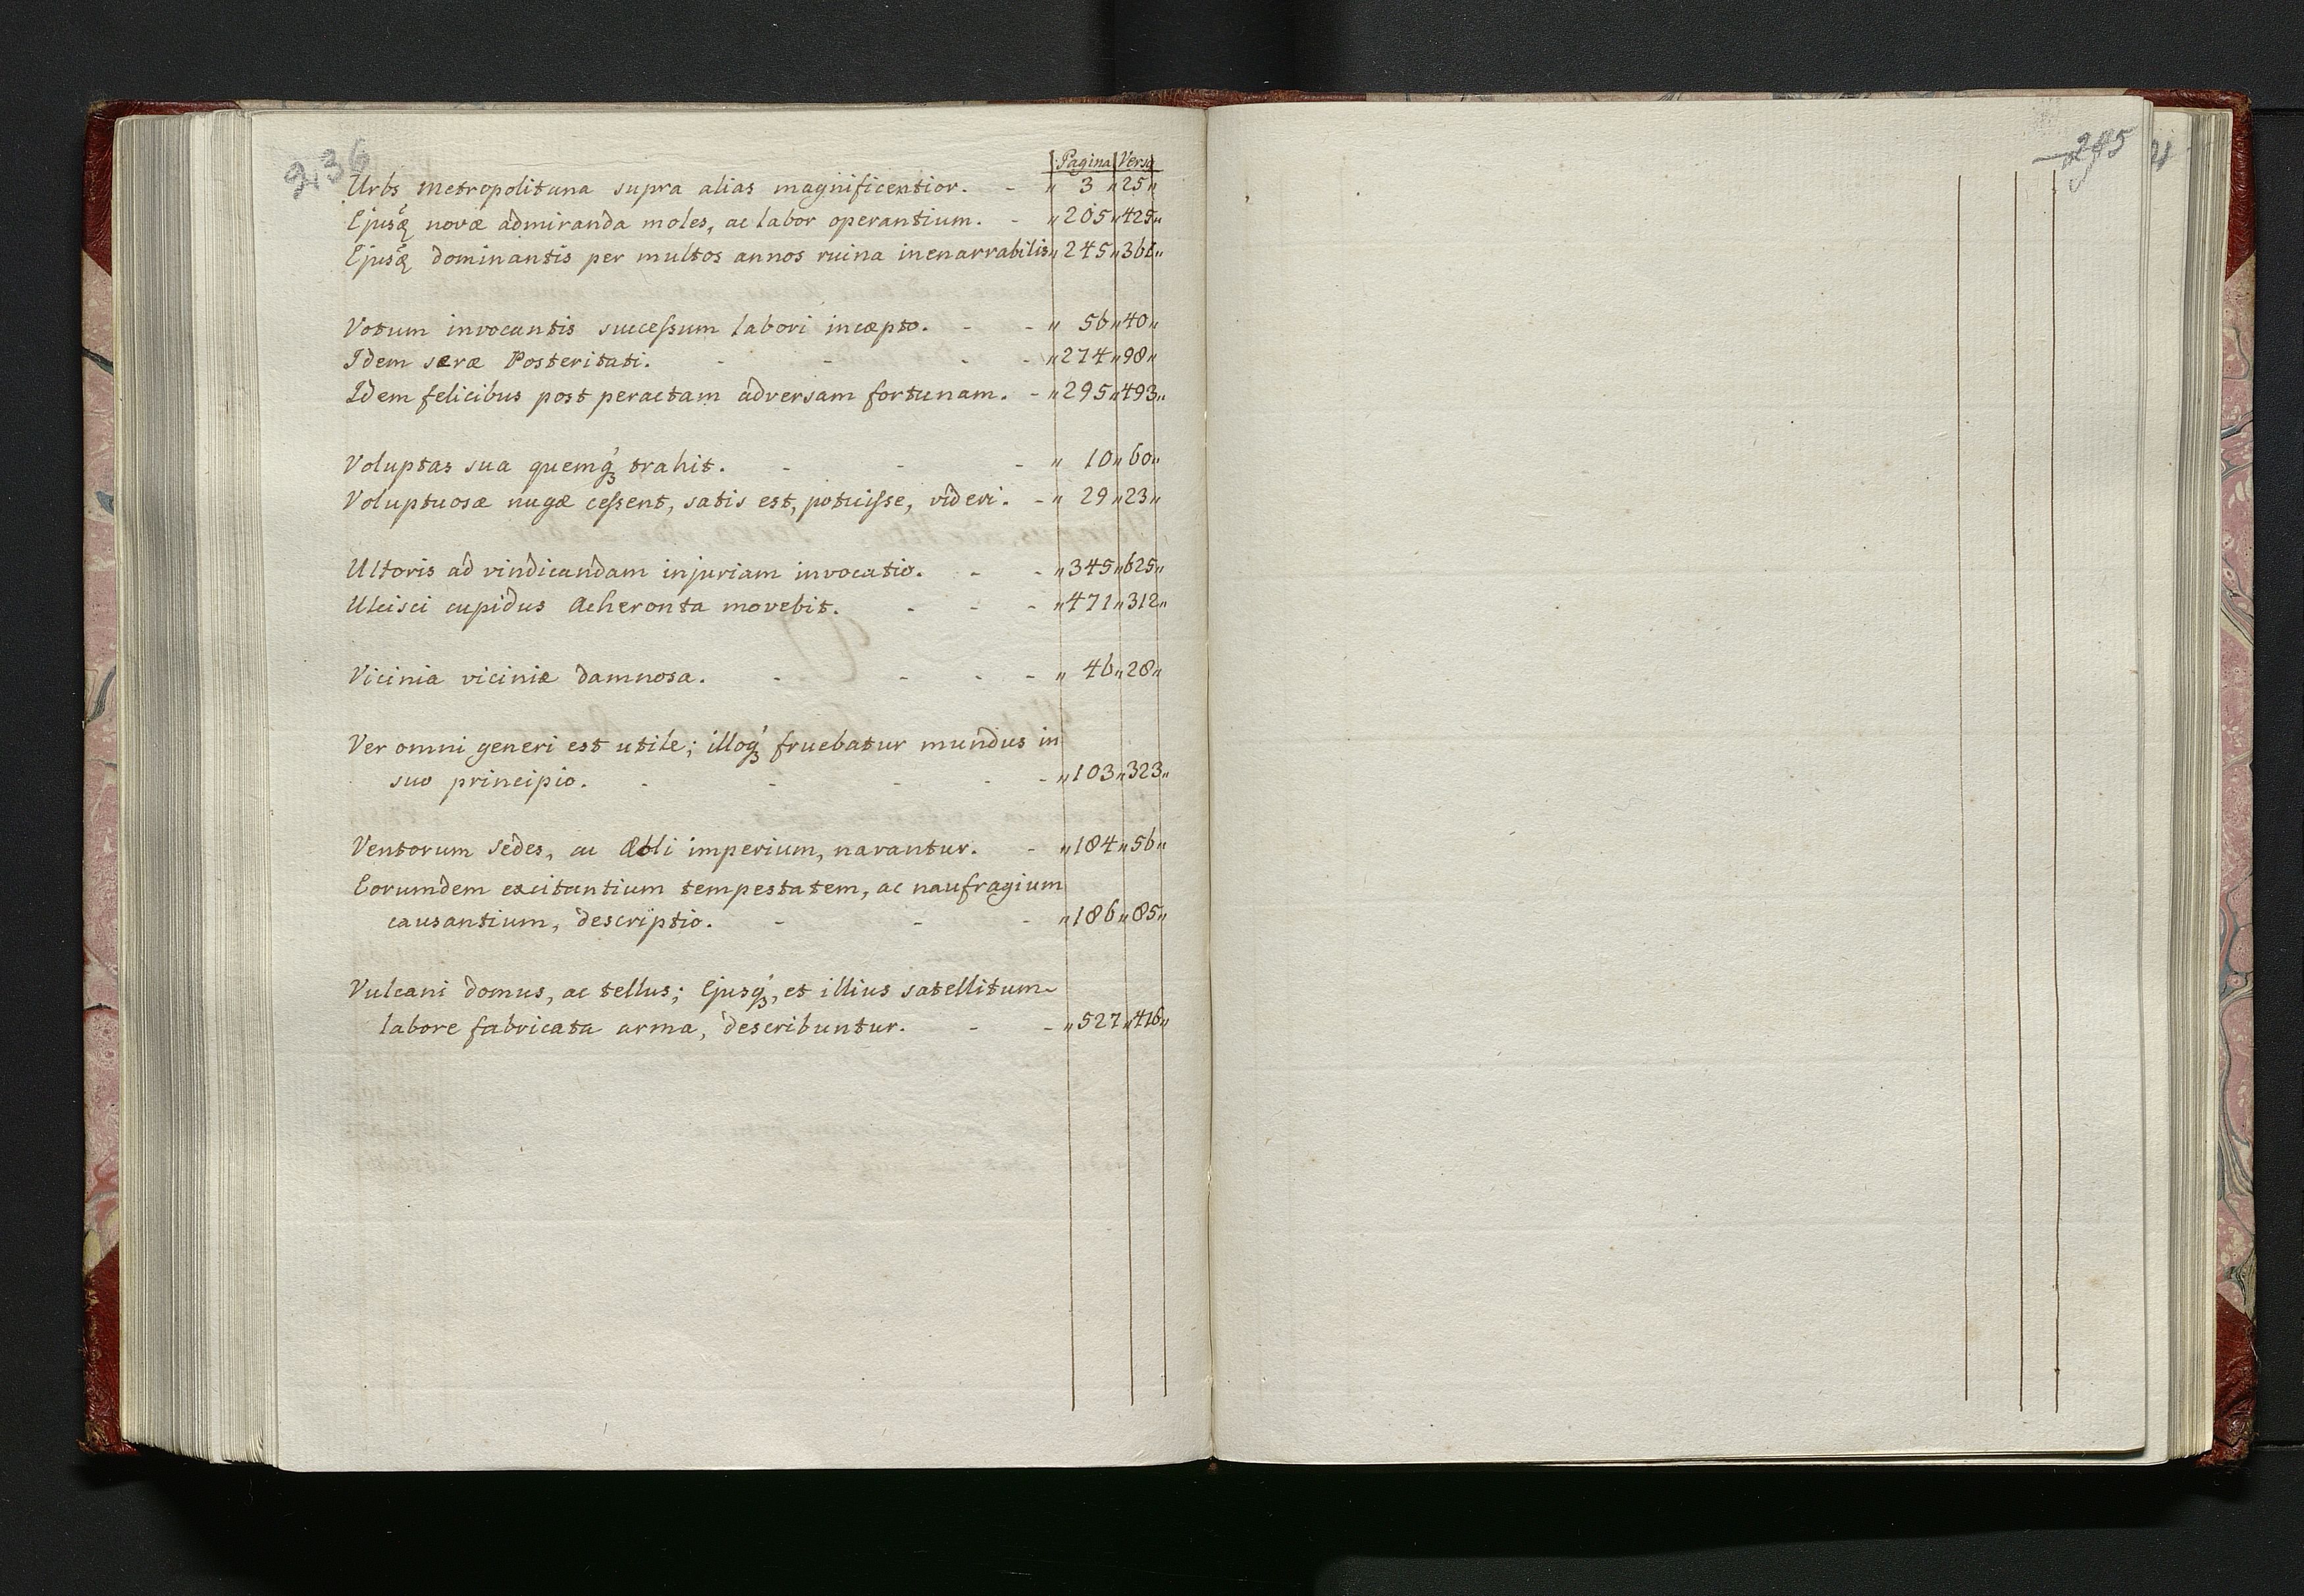 236
Pagina Versu
Urbs metropolitana supra alias magnificentior. - " 3 " 25 "
Ejusq́ꝫ novæ admiranda moles, ac labor operantium. - " 205 " 425 "
Ejusq́ꝫ dominantis per multos annos ruina inenarrabilis " 245 " 361 "
Votum invocantis succeſsum labori incæpto. - - " 56 " 40 "
Idem seræ Posteritati. - - - - " 274 " 98 "
Idem felicibus post peractam adversam fortunam. - " 295 " 493 "
Voluptas sua quemq́ꝫ trahit. - - - " 10 " 60 "
Voluptuosæ nugæ ceſsent, satis est, potuiſse, videri. - " 29 " 23 "
Ultoris ad vindicandam injuriam invocatio. - - " 345 " 625 "
Ulcisci cupidus Acheronta movebit. - - - " 471 " 312 "
Vicinia viciniæ damnosa. - - - - " 46 " 28 "
Ver omni generi est utile; illoq́ꝫ fruebatur mundus in
suo principio. - - - - - " 103 " 323 "
Ventorum sedes, ac Æoli imperium, narantur. - " 184 " 56 "
Eorumdem excitantium tempestatem, ac naufragium
causantium, descriptio. - - - " 186 " 85 "
Vulcani domus, ac tellus; Ejusq́ꝫ, et illius satellitum
labore fabricata arma, describuntur. - - " 527 " 416 "